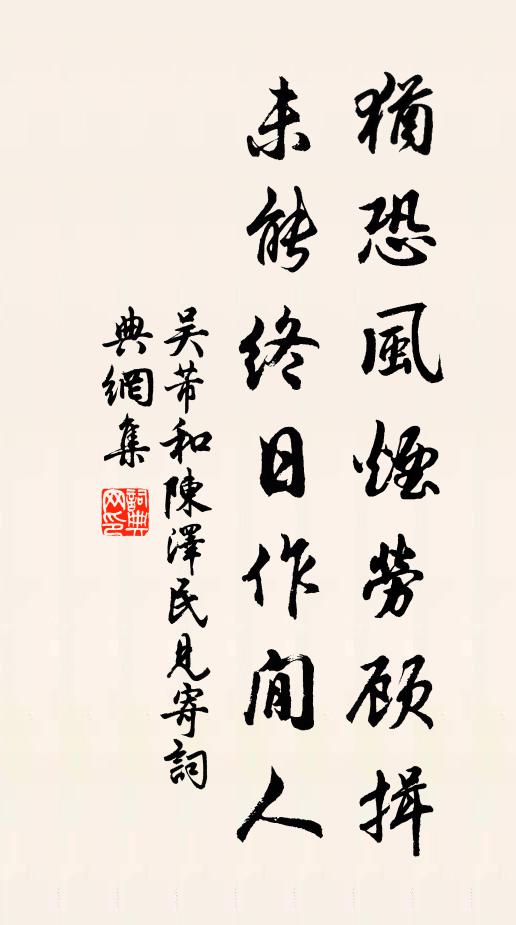 猶恐風煙勞顧揖
未能終日作閒人
吴芾和陳澤民見寄詞
典網集
詞典
网印